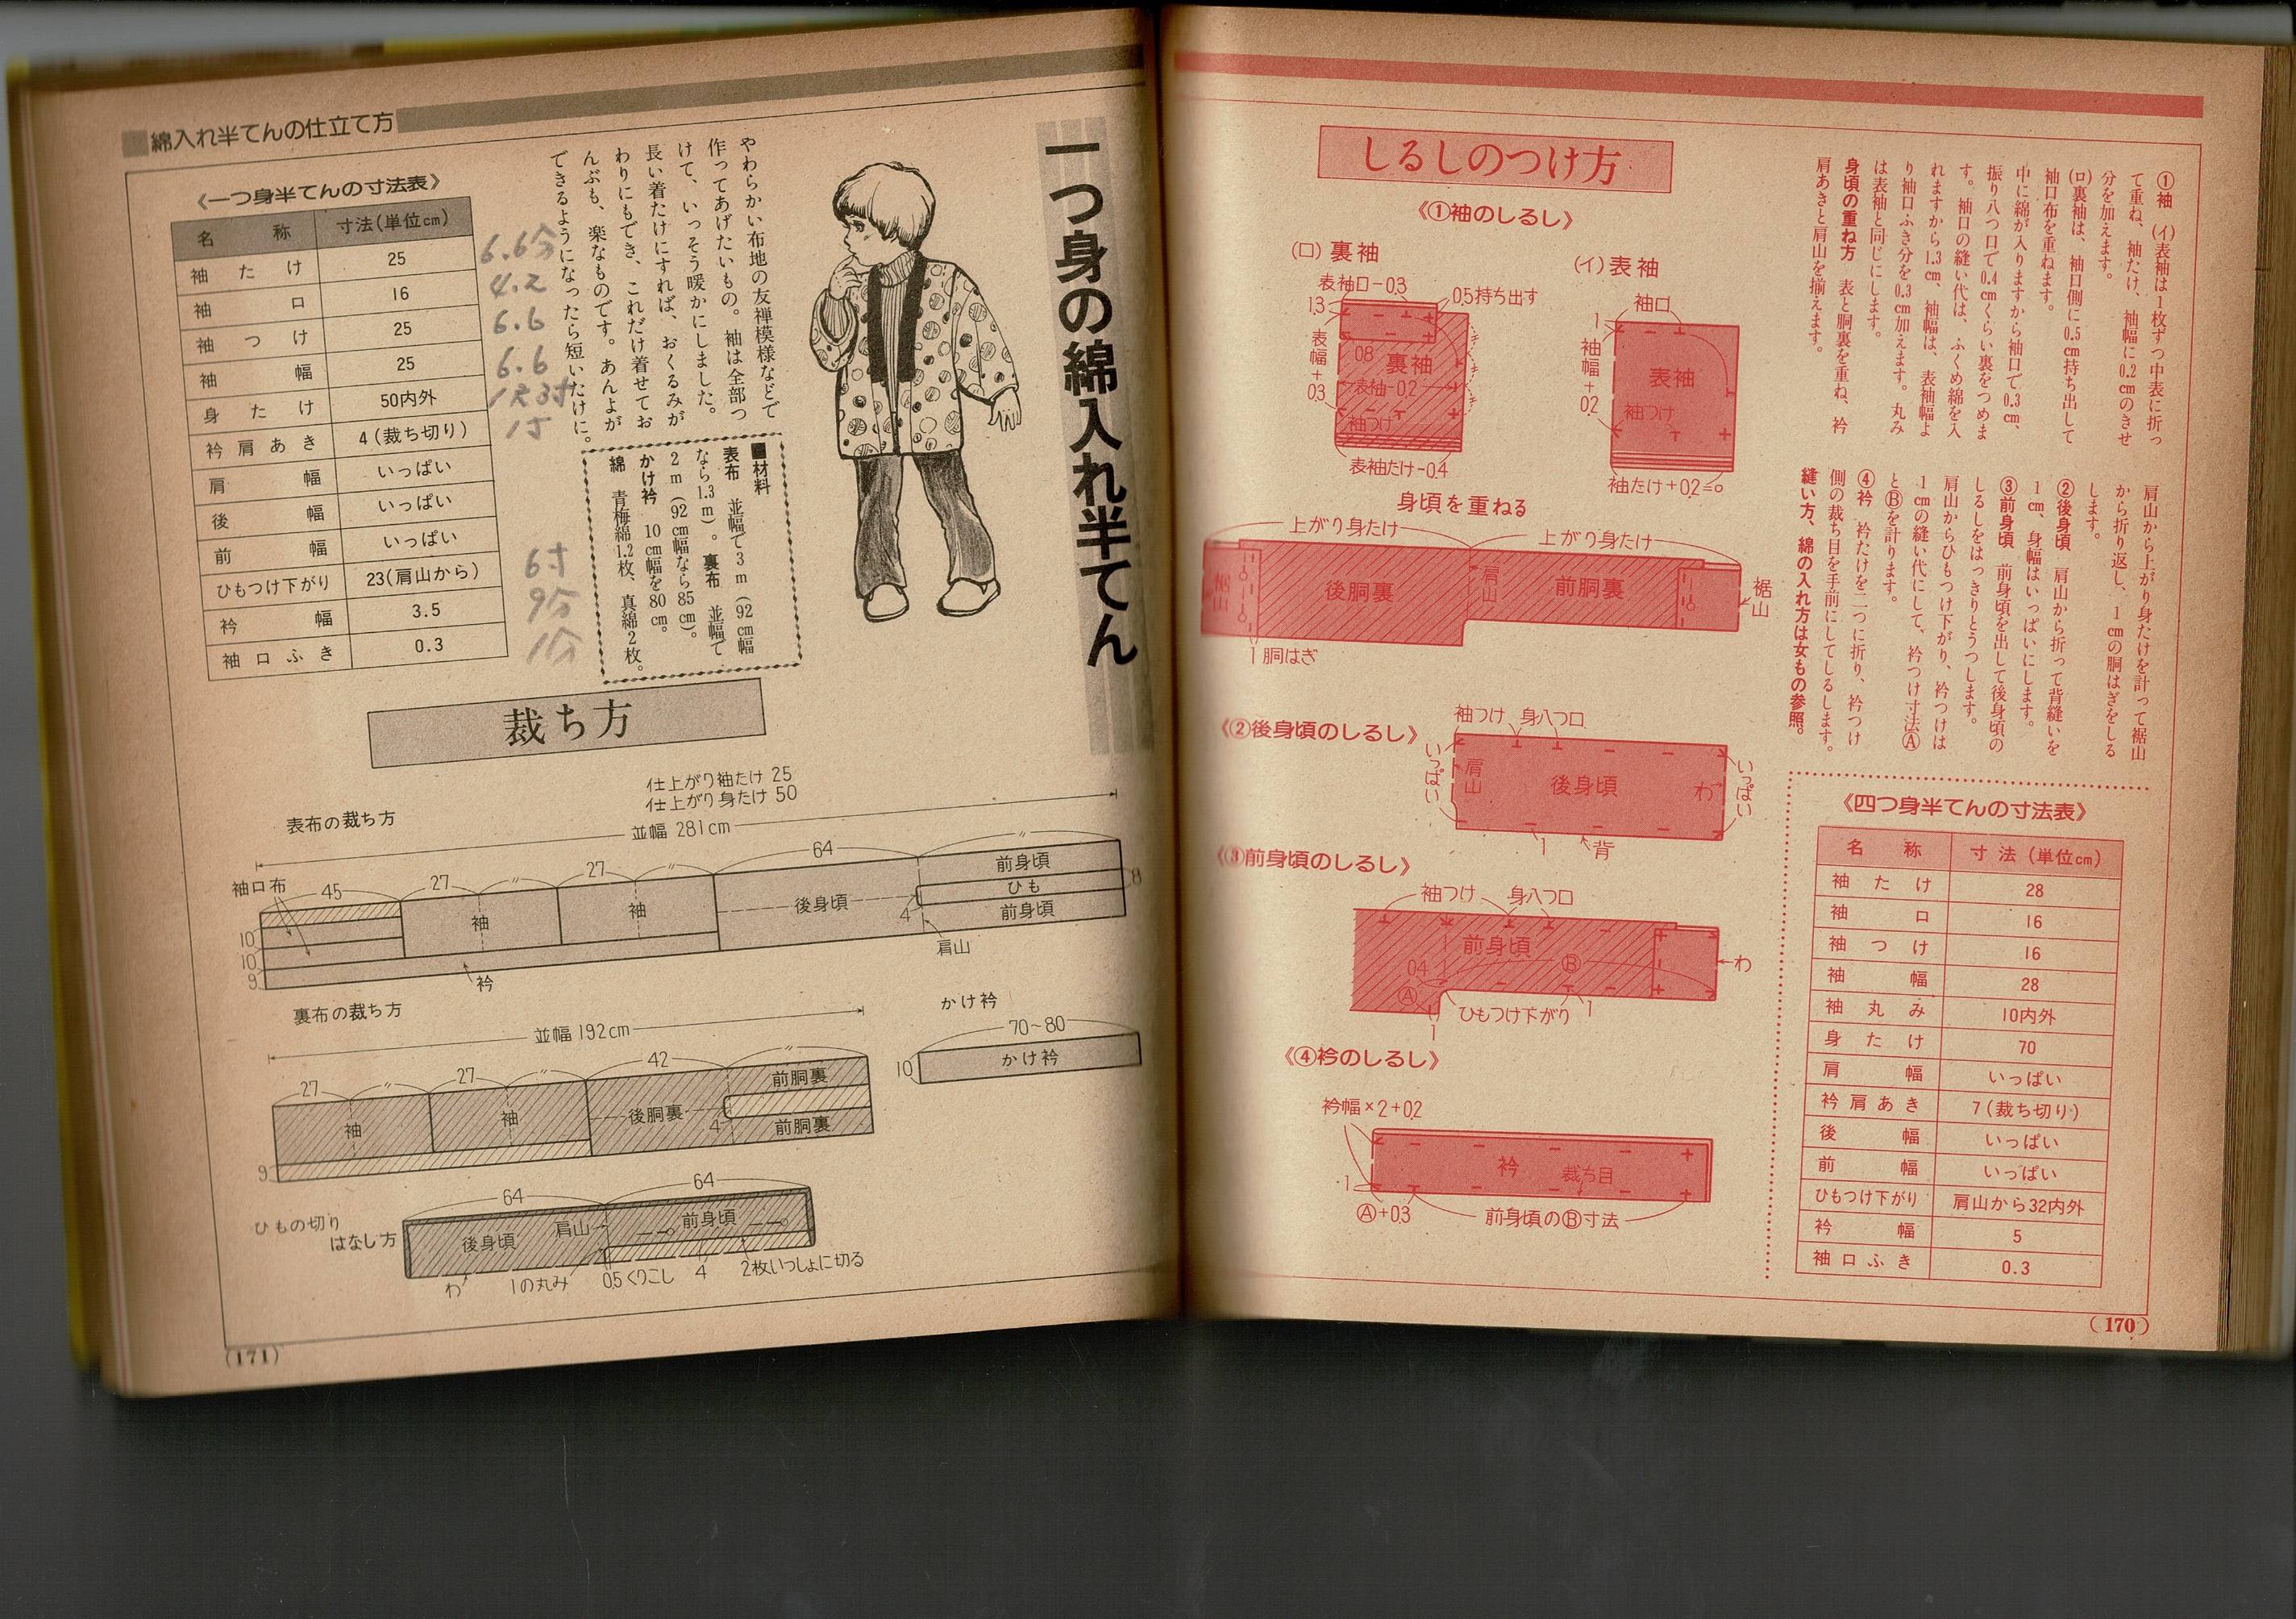 しるしのつけ方
①袖 (イ)表袖は1枚ずつ中表に折っ
て重ね、袖たけ、袖幅に0.2cmのきせ
分を加えます。
(ロ)裏袖は、袖口側に0.5cm持ち出して
袖口布を重ねます。
中に綿が入りますから袖口で0.3cm、
振り八つ口で0.4cmくらい裏をつめま
す。袖口の縫い代は、ふくめ綿を入
れますから1.3cm、袖幅は、表袖幅よ
り袖口ふき分を0.3cm加えます。丸み
は表袖と同じにします。
身頃の重ね方 表と胴裏を重ね、衿
肩あきと肩山を揃えます。
肩山から上がり身たけを計って裾山
から折り返し、1cmの胴はぎをしる
します。
②後身頃 肩山から折って背縫いを
1cm、身幅はいっぱいにします。
③前身頃 前身頃を出して後身頃の
しるしをはっきりとうつします。
肩山からひもつけ下がり、衿つけは
1cmの縫い代にして、衿つけ寸法Ⓐ
とⒷを計ります。
④衿 衿たけを二つに折り、衿つけ
側の裁ち目を手前にしてしるします。
縫い方、綿の入れ方は女もの参照。
《①袖のしるし》
(イ)表袖
袖口
1
袖幅+0.2
表袖
袖つけ
袖たけ+0.2=○
(ロ)裏袖
表袖口-0.3
0.5持ち出す
1.3
表幅+0.3
0.8
裏袖
表袖-0.2
袖つけ
表袖たけ-0.4
身頃を重ねる
上がり身たけ
上がり身たけ
後胴裏
肩山
前胴裏
裾山
1胴はぎ
《②後身頃のしるし》
袖つけ 身八つ口
いっぱい
肩山
後身頃
わ
いっぱい
1
背
《③前身頃のしるし》
袖つけ 身八つ口
前身頃
0.4
Ⓐ
Ⓑ
わ
ひもつけ下がり
1
1
《④衿のしるし》
衿幅×2+0.2
衿
裁ち目
1
Ⓐ+0.3
前身頃のⒷ寸法
《四つ身半てんの寸法表》
名称 寸法(単位cm)
袖たけ 28
袖口 16
袖つけ 16
袖幅 28
袖丸み 10内外
身たけ 70
肩幅 いっぱい
衿肩あき 7(裁ち切り)
後幅 いっぱい
前幅 いっぱい
ひもつけ下がり 肩山から32内外
衿幅 5
袖口ふき 0.3
(170)
■綿入れ半てんの仕立て方
一つ身の綿入れ半てん
やわらかい布地の友禅模様などで
作ってあげたいもの。袖は全部つ
けて、いっそう暖かにしました。
長い着たけにすれば、おくるみが
わりにもでき、これだけ着せてお
んぶも、楽なものです。あんよが
できるようになったら短いたけに。
■材料
表布 並幅で3m(92cm幅
なら1.3m)。裏布 並幅で
2m(92cm幅なら85cm)。
かけ衿 10cm幅を80cm。
綿 青梅綿1.2枚、真綿2枚。
《一つ身半てんの寸法表》
名称 寸法(単位cm)
袖たけ 25
袖口 16
袖つけ 25
袖幅 25
身たけ 50内外
衿肩あき 4(裁ち切り)
肩幅 いっぱい
後幅 いっぱい
前幅 いっぱい
ひもつけ下がり 23(肩山から)
衿幅 3.5
袖口ふき 0.3
6.6分
4.2
6.6
6.6
1尺3寸
1寸
6寸
9分
1分
裁ち方
仕上がり袖たけ 25
仕上がり身たけ 50
表布の裁ち方
並幅 281cm
袖口布
45
27
〃
27
〃
64
〃
10
10
9
袖
袖
後身頃
前身頃
ひも
前身頃
8
4
肩山
衿
裏布の裁ち方
並幅 192cm
27
〃
27
〃
42
〃
9
袖
袖
後胴裏
前胴裏
前胴裏
4
かけ衿
70~80
10
かけ衿
ひもの切り
はなし方
64
64
後身頃
肩山
前身頃
わ
1の丸み
0.5くりこし
4
2枚いっしょに切る
(171)